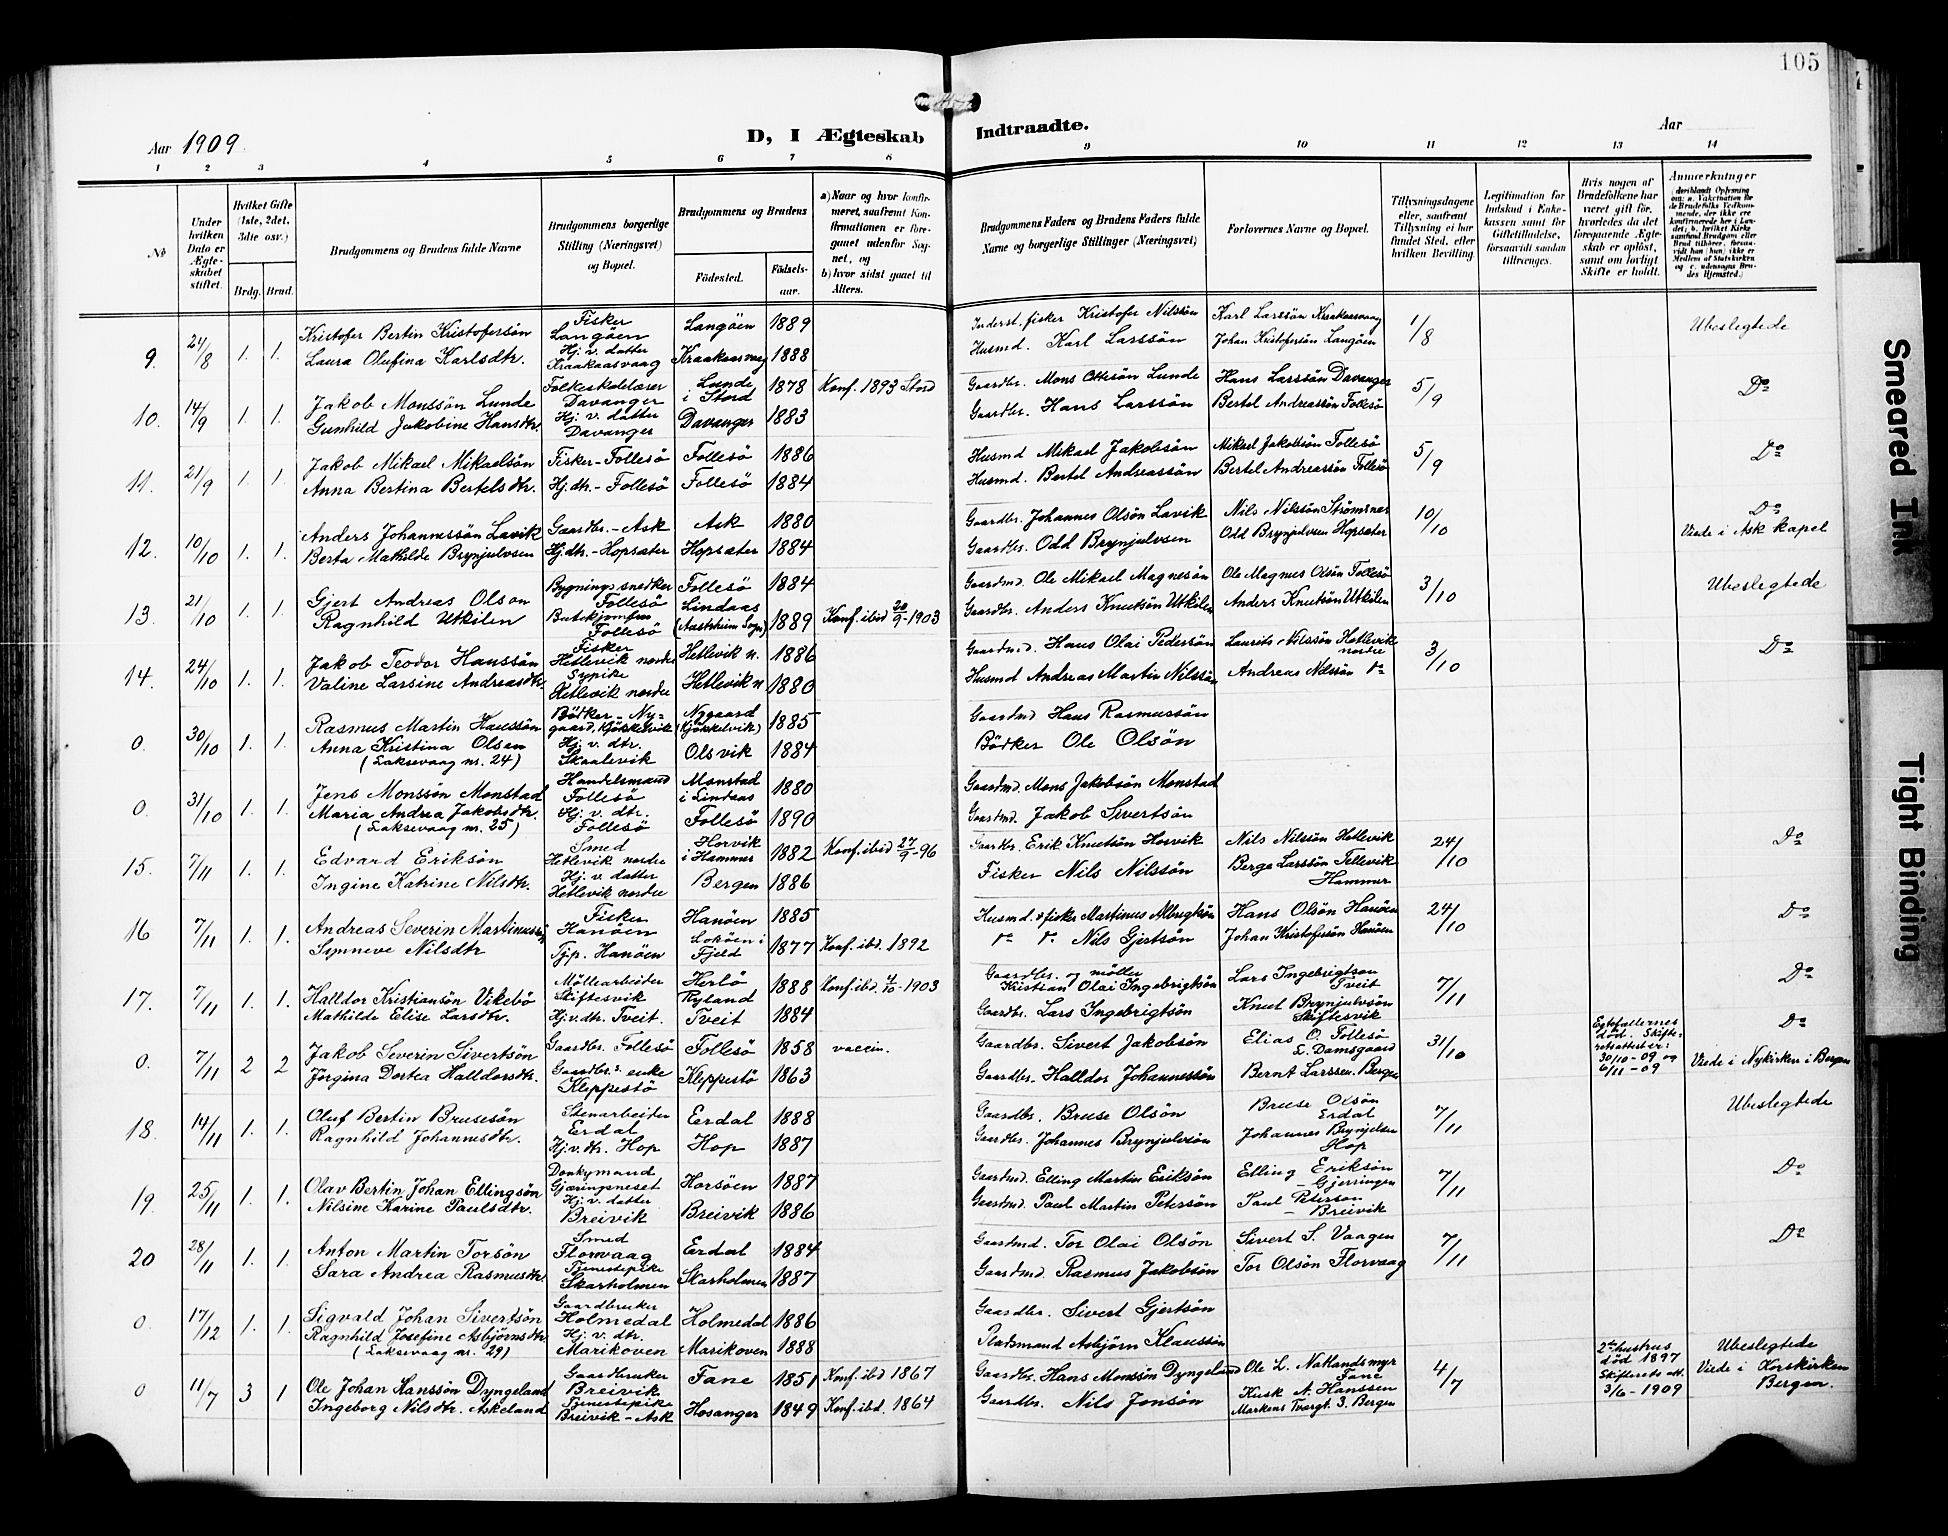 105
Aar 1909.
D, I Ægteskab Indtraadte.
Aar
1 2 3 4 5 6 7 8 9 10 11 12 13 14
No
Under hvilken Dato er Ægteskabet stiftet.
Hvilket Gifte (1ste, 2det, 3die osv.)
Brdg. Brud.
Brudgommens og Brudens fulde Navne
Brudgommens borgerlige Stilling (Næringsvei) og Bopæl.
Brudgommens og Brudens
Födested. Födsels-aar.
a) Naar og hvor konfirmeret, saafremt Konfirmationen er foregaaet udenfor Sognet, og
b) hvor sidst gaaet til Alters.
Brudgommens Faders og Brudens Faders fulde Navne og borgerlige Stillinger (Næringsvei)
Forlovernes Navne og Bopæl.
Tillysningsdagene eller, saafremt Tillysning ei har fundet Sted, efter hvilken Bevilling.
Legitimation for Indskud i Enkekassen samt for Giftetilladelse, forsaavidt saadan tiltrænges.
Hvis nogen af Brudefolkene har været gift før, hvorledes da det foregaaende Ægteskab er opløst, samt om lovligt Skifte er holdt.
Anmærkninger
9. 24/8 1. 1. Kristofer Bertin Kristofersön Fisker Langöen Langöen 1889 Inderst, fisker Kristofer Nilssön Karl Larssön Kraakaasvaag 1/8 Ubeslegtede
Laura Olufina Karlsdtr. Hj. v. datter Kraakaasvaag Kraakaasvaag 1888 Husmd. Karl Larssön Johan Kristofersön Langöen
10. 14/9 1. 1. Jakob Monssön Lunde Folkeskolelærer Davanger Lunde i Stord 1878 Konf. 1893 Stord Gaardbr. Mons Ottesön Lunde Hans Larssön Davanger 5/9 Do
Gunhild Jakobine Hansdtr. Hj. v. datter Davanger Davanger 1883 Gaardbr. Hans Larssön Bertel Andreassön Follesö
11. 21/9 1. 1. Jakob Mikael Mikaelsön Fisker - Follesö Follesö 1886 Husmd Mikael Jakobsön Mikael Jakobsön Follesö 5/9 Do
Anna Bertina Bertelsdtr. Hj. dtr. - Follesö Follesö 1884 Husmd. Bertel Andreassön Bertel Andreassön Follesö
12. 10/10 1. 1. Anders Johannessön Lavik Gaardbr. - Ask Ask 1880 Gaardbr. Johannes Olsön Lavik Nils Nilssön Strömsnes 10/10 Do
Berta Mathilde Brynjulvsen Hj. dtr. - Hopsæter Hopsæter 1884 Gaardbr. Odd Brynjulvsen Odd Brynjulvsen Hopsæter Viede i Ask kapel
13. 21/10 1. 1. Gjert Andreas Olson Bygningssnedker Follesö Follesö 1884 Gaardmd. Ole Mikael Magnesön Ole Magnus Olsön Follesö 3/10 Ubeslegtede
Ragnhild Utkilen Butikjomfru Follesö Lindaas (Austrheim Sogn) 1889 Konf. ibid 20/9-1903 Gaardbr. Anders Knutsön Utkilen Anders Knutsön Utkilen
14. 24/10 1. 1. Jakob Teodor Hanssön Fisker Hetlevik nordre Hetlevik n. 1886 Gaardmd. Hans Olai Pedersön Laurits Nilssön Hetlevik nordre 3/10 Do
Valine Larsine Andreasdtr. Sypike Hetlevik nordre Hetlevik n 1880 Husmd Andreas Martin Nilssön Andreas Nilssön do
0. 30/10 1. 1. Rasmus Martin Hanssön Bödker - Nygaard, Kjökkelvik Nygaard (Kjökkelvik) 1885 Gaardmd Hans Rasmussön
Anna Kristina Olsen Hj. v. dtr. Skaalevik Olsvik 1884 Bödker Ole Olsön
(Laksevaag nr. 24)
0. 31/10 1. 1. Jens Monssön Monstad Handelsmand Follesö Monstad i Lindaas 1880 Gaardmd. Mons Jakobsön Monstad
Maria Andrea Jakobsdtr. Hj. v. dtr. Follesö Follesö 1890 Gaardmd. Jakob Sivertsön
(Laksevaag nr. 25)
15. 7/11 1. 1. Edvard Eriksön Smed Hetlevik nordre Horvik i Hammer 1882 Konf. ibid 27/9-96 Gaardbr. Erik Knutsön Horvik Nils Nilssön Hetlevik 24/10 Do
Ingine Katrine Nilsdtr. Hj. v. datter Hetlevik nordre Bergen 1886 Fisker Nils Nilssön Berge Larssön Tellevik Hammer
16 7/11 1. 1. Andreas Severin Martinussön Fisker Hanöen Hanöen 1885 Husmd. o fisker Martinus Albrigtsön Hans Olsön Hanöen 24/10 Do
Synneve Nilsdtr Tjp. Hanöen Loköen i Fjeld 1877 Konf. ibd. 1892 do do Nils Gjertsön Johan Kristofersön Hanöen
17. 7/11 1. 1. Halldor Kristiansön Vikebö Möllearbeider Skiftesvik Herlö Nyland 1888 Konf. ibd. 4/10-1903 Gaardbr. og möller Kristian Olai Ingebrigtsön Lars Ingebrigtson Tveit 7/11 Do
Mathilde Elise Larsdtr. Hj. v. dtr. Tveit. Tveit 1884 Gaardbr. Lars Ingebrigtsön Knut Brynjulvsön Skiftesvik
0. 7/11 2 2 Jakob Severin Sivertsön Gaardbr. Follesö Follesö 1858 vaccin. Gaardbr. Sivert Jakobsön Elias O. Follesö L. Damsgaard 31/10 Egtefællernes död. Skifteretsattester: 30/10-09 og 6/11-09 Do
Jörgina Dortea Halldorsdtr. Gaardbr.s enke Kleppestö Kleppestö 1863 Gaardbr. Halldor Johannessön Bernt Larssen. Bergen Viede i Nykirken i Bergen
18. 14/11 1. 1. Oluf Bertin Brusesön Stenarbeider Erdal Erdal 1888 Gaardbr. Bruse Olsön Bruse Olsön Erdal 7/11 Ubeslegtede
Ragnhild Johannesdtr. Hj. v. dtr. Hop Hop 1887 Gaardbr. Johannes Brynjulvsön Johannes Brynjelsen Hop
19. 25/11 1. 1. Olav Bertin Johan Ellingsön Donkymand Gjæringneset Horsöen 1887 Gaardmd. Elling Martin Eriksön Elling Eriksön - Gjerringen 7/11 Do
Nilsine Karine Paulsdtr. Hj. v. datter Breivik Breivik 1886 Gaardmd. Paul Martin Petersön Paul Peterson - Breivik
20 28/11 1. 1. Anton Martin Torsön Smed Florvaag Erdal 1884 Gaardmd. Tor Olai Olsön Sivert S. Vaagen 7/11 Do
Sara Andrea Rasmusdtr Tjenestepike Skarholmen Skarholmen 1887 Gaardmd. Rasmus Jakobsön Tor Olsön Florvaag
0. 17/12 1. 1. Sigvald Johan Sivertsön Gaardbruker Holmedal Holmedal 1886 Gaardbr. Sivert Gjertsön
Ragnhild Josefine Asbjörnsdtr Hj. v. dtr. Marikoven Marikoven 1888 Pladsmand Asbjörn Klaussön
(Laksevaag nr. 29)
0 11/7 3 1 Ole Johan Hanssön Dyngeland Gaardbruker Breivik Fane 1851 Konf. ibd 1867 Gaardbr. Hans Monssön Dyngeland Ole L. Natlandsmyr Fane 4/7 2den hustrus död 1897 Skifterets att. 3/6-1909 Ubeslegtede
Ingeborg Nilsdtr. Askeland Tjenestepike Breivik - Ask Hosanger 1849 Konf. ibd. 1864 Gaardbr. Nils Jonsön Kirsk N. Hanssen Markens Tvergt. 3. Bergen Viede i Korskirken Bergen.
Smeared Ink
Tight Binding